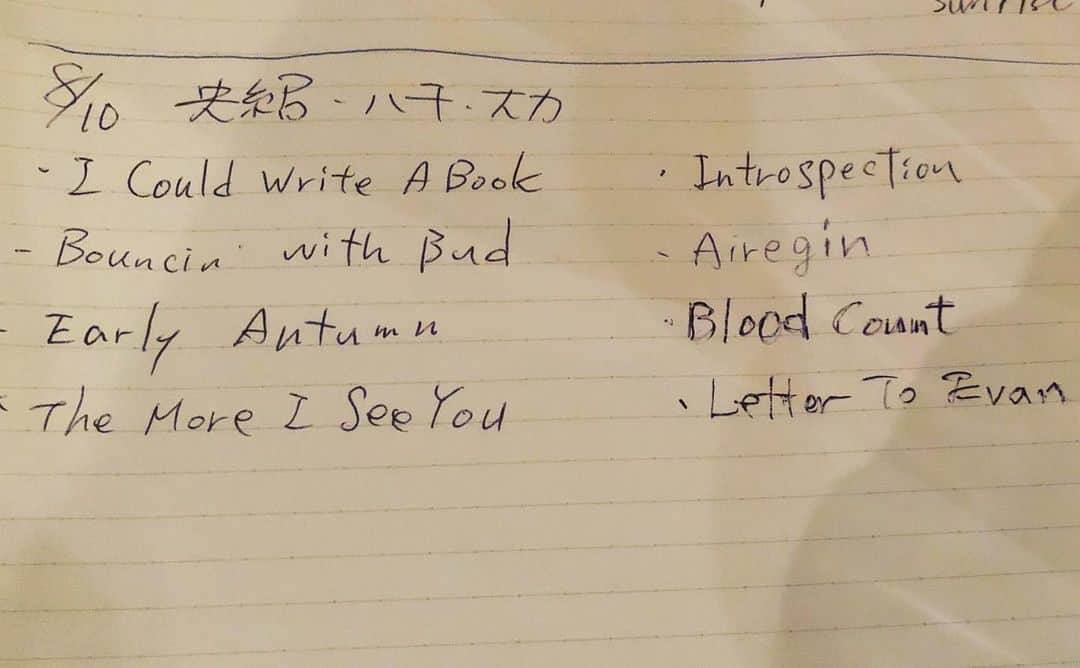 sunrise
8/10 央紹
・I Could Write A Book
- Bouncin' with Bud
- Early Autumn
・The More I See You
・Introspection
- Airegin
・Blood Count
・Letter To Evan